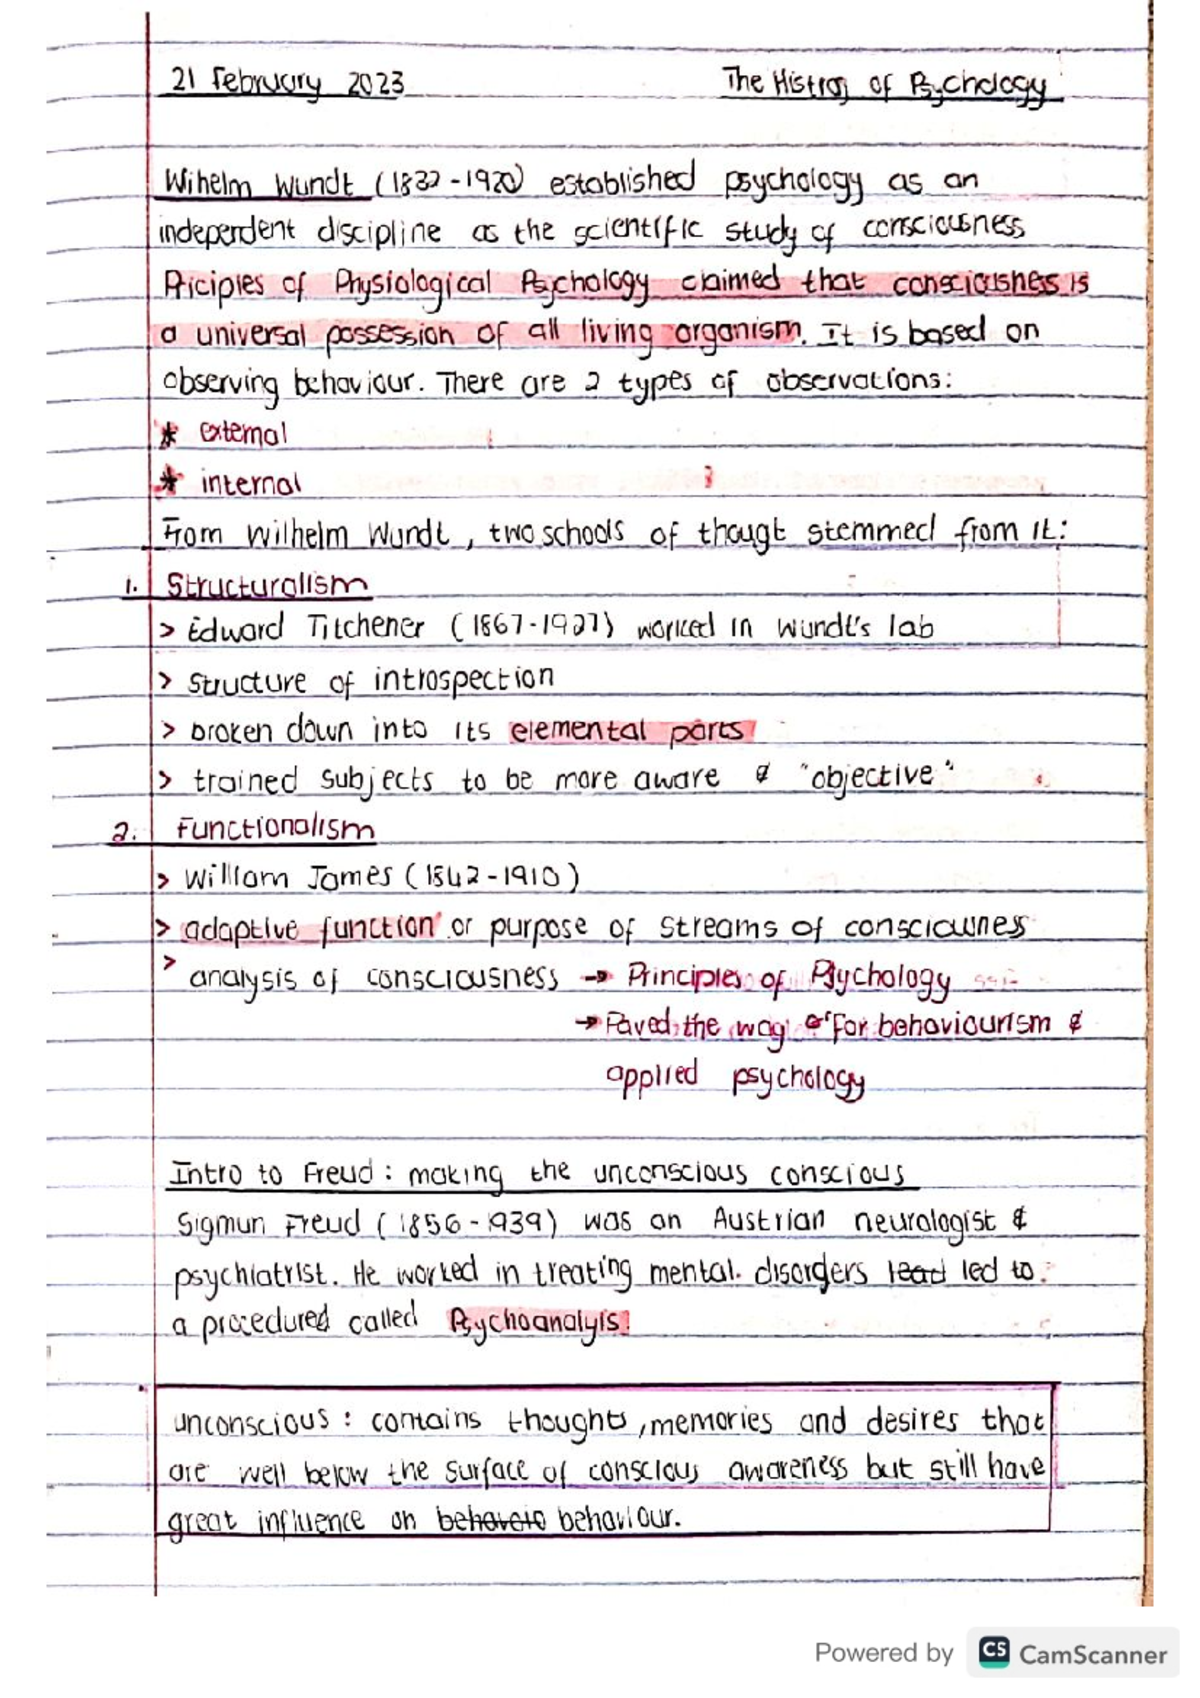 21 February 2023 The Histroy of Psychology
Wihelm Wundt (1832-1920) established psychology as an
independent discipline as the scientific study of consciousness
Priciples of Physiological Psychology claimed that consciousness is
a universal possession of all living organism. It is based on
observing behaviour. There are 2 types of observations:
* external
* internal
From Wilhelm Wundt, two schools of thougt stemmed from it:
1. Structuralism
> Edward Titchener (1867-1927) worked in Wundt's lab
> structure of introspection
> broken down into its elemental parts
> trained subjects to be more aware & "objective"
2. Functionalism
> William James (1842-1910)
> adaptive function or purpose of streams of consciouness
> analysis of consciousness → Principles of Psychology
→ Paved the way for behaviourism &
applied psychology
Intro to Freud: making the unconscious conscious
Sigmun Freud (1856-1939) was an Austrian neurologist &
psychiatrist. He worked in treating mental disorders lead led to
a procedured called Psychoanalyis!
unconscious: contains thoughts, memories and desires that
are well below the surface of conscious awareness but still have
great influence on behaviour.
Powered by CS CamScanner